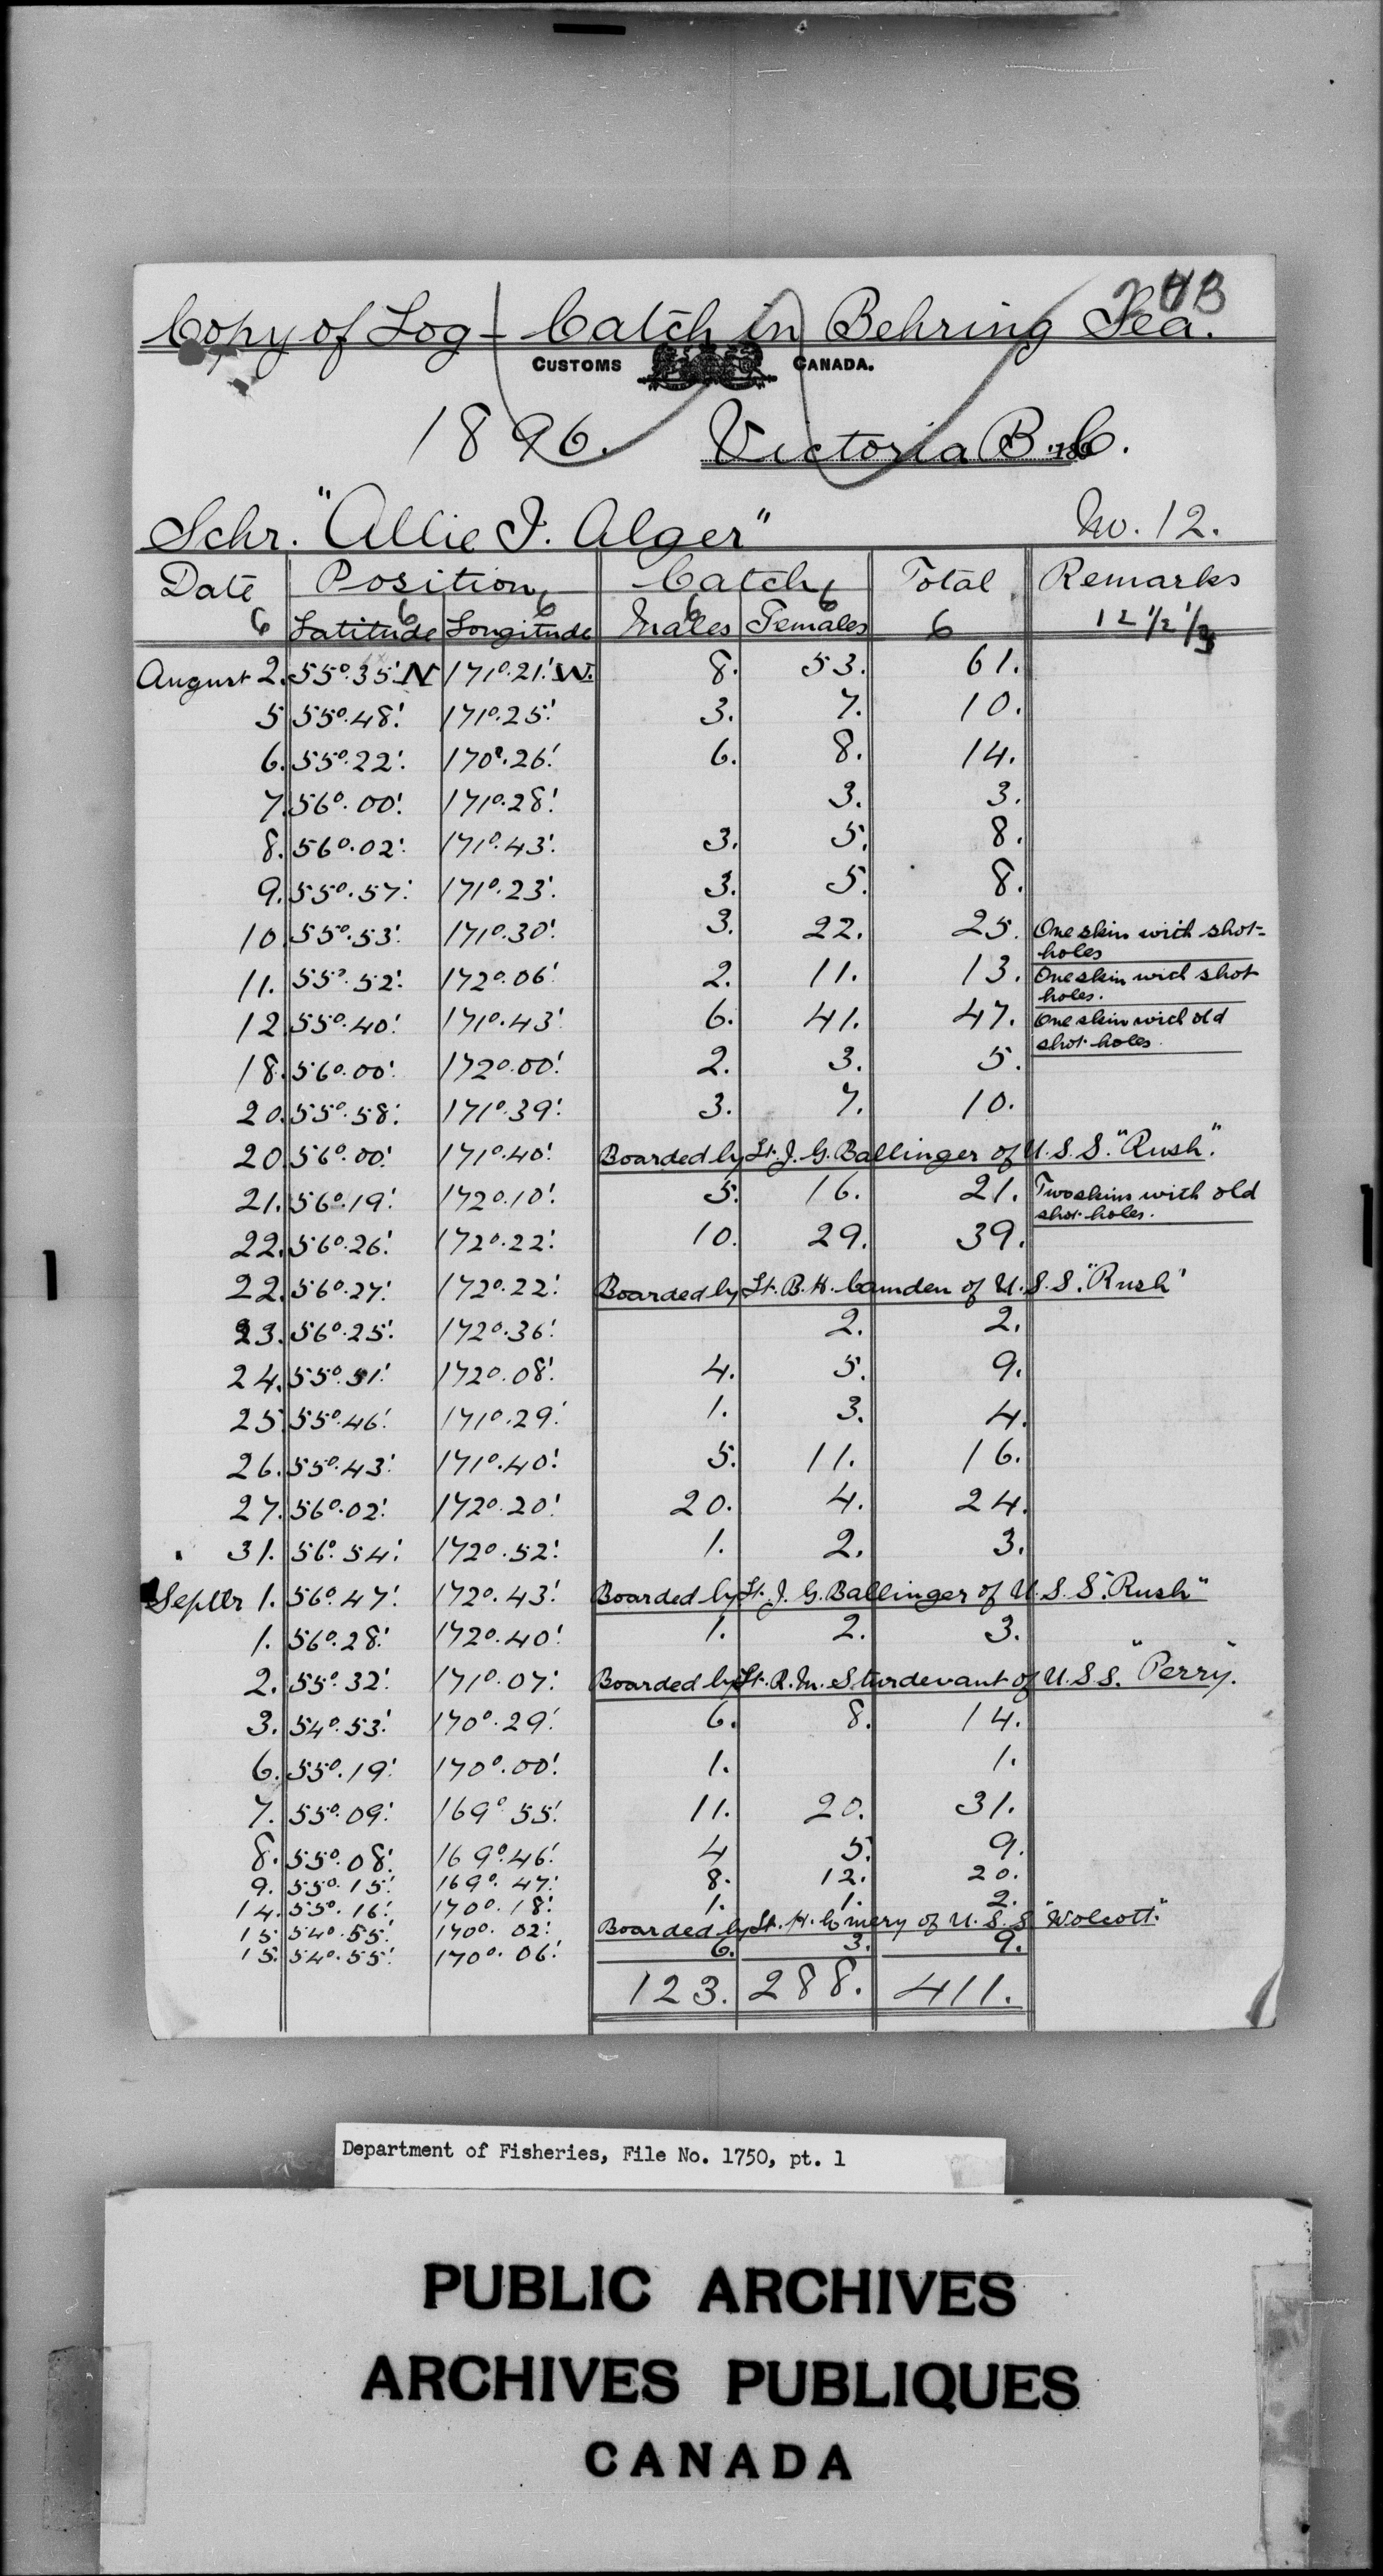 24B
Copy of Log - Catch in Behring Sea.
CUSTOMS CANADA.
1896. Victoria B.C.
Schr. "Allie I. Alger" No. 12.
Date Position Catch Total Remarks
6 Latitude 6 Longitude 6 Males 6 Females 6 6 12 1/2 1/3
August 2. 55°.35'.N 171°.21'.W. 8. 53. 61.
5 55°.48'. 171°.25'. 3. 7. 10.
6. 55°.22'. 170°.26'. 6. 8. 14.
7. 56°.00'. 171°.28'. 3. 3.
8. 56°.02'. 171°.43'. 3. 5. 8.
9. 55°.57'. 171°.23'. 3. 5. 8.
10 55°.53'. 171°.30'. 3. 22. 25. One skin with shot-
holes
11. 55°.52'. 172°.06'. 2. 11. 13. One skin with shot
holes.
12 55°.40'. 171°.43'. 6. 41. 47. One skin with old
shot holes.
18. 56°.00'. 172°.00'. 2. 3. 5.
20. 55°.58'. 171°.39'. 3. 7. 10.
20 56°.00'. 171°.40'. Boarded by Lt. J. G. Ballinger of U.S.S. "Rush".
21. 56°.19'. 172°.10'. 5. 16. 21. Two skins with old
shot holes.
22. 56°.26'. 172°.22'. 10. 29. 39.
22. 56°.27'. 172°.22'. Boarded by Lt. B. H. Camden of U.S.S. "Rush"
23. 56°.25'. 172°.36'. 2. 2.
24. 55°.51'. 172°.08'. 4. 5. 9.
25. 55°.46'. 171°.29'. 1. 3. 4.
26. 55°.43'. 171°.40'. 5. 11. 16.
27. 56°.02'. 172°.20'. 20. 4. 24.
31. 56°.54'. 172°.52'. 1. 2. 3.
Septbr 1. 56°.47'. 172°.43'. Boarded by Lt. J. G. Ballinger of U.S.S. "Rush"
1. 56°.28'. 172°.40'. 1. 2. 3.
2. 55°.32'. 171°.07'. Boarded by Lt. R. M. Sturdevant of U.S.S. "Perry".
3. 54°.53'. 170°.29'. 6. 8. 14.
6. 55°.19'. 170°.00'. 1. 1.
7. 55°.09'. 169°.55'. 11. 20. 31.
8. 55°.08'. 169°.46'. 4 5. 9.
9. 55°.15'. 169°.47'. 8. 12. 20.
14. 55°.16'. 170°.18'. 1. 1. 2.
15 54°.55'. 170°.02'. Boarded by Lt. H. Emery of U.S.S. "Wolcott".
15. 54°.55'. 170°.06'. 6. 3. 9.
123. 288. 411.
Department of Fisheries, File No. 1750, pt. 1
PUBLIC ARCHIVES
ARCHIVES PUBLIQUES
CANADA